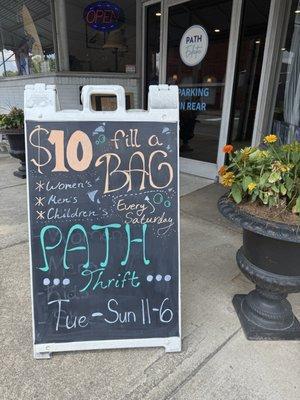 OPEN
PATH
PARKING
IN REAR
$10 fill a
BAG
* Women's
* Men's
* Children's
Every
Saturday
PATH
Thrift
Tue - Sun 11-6